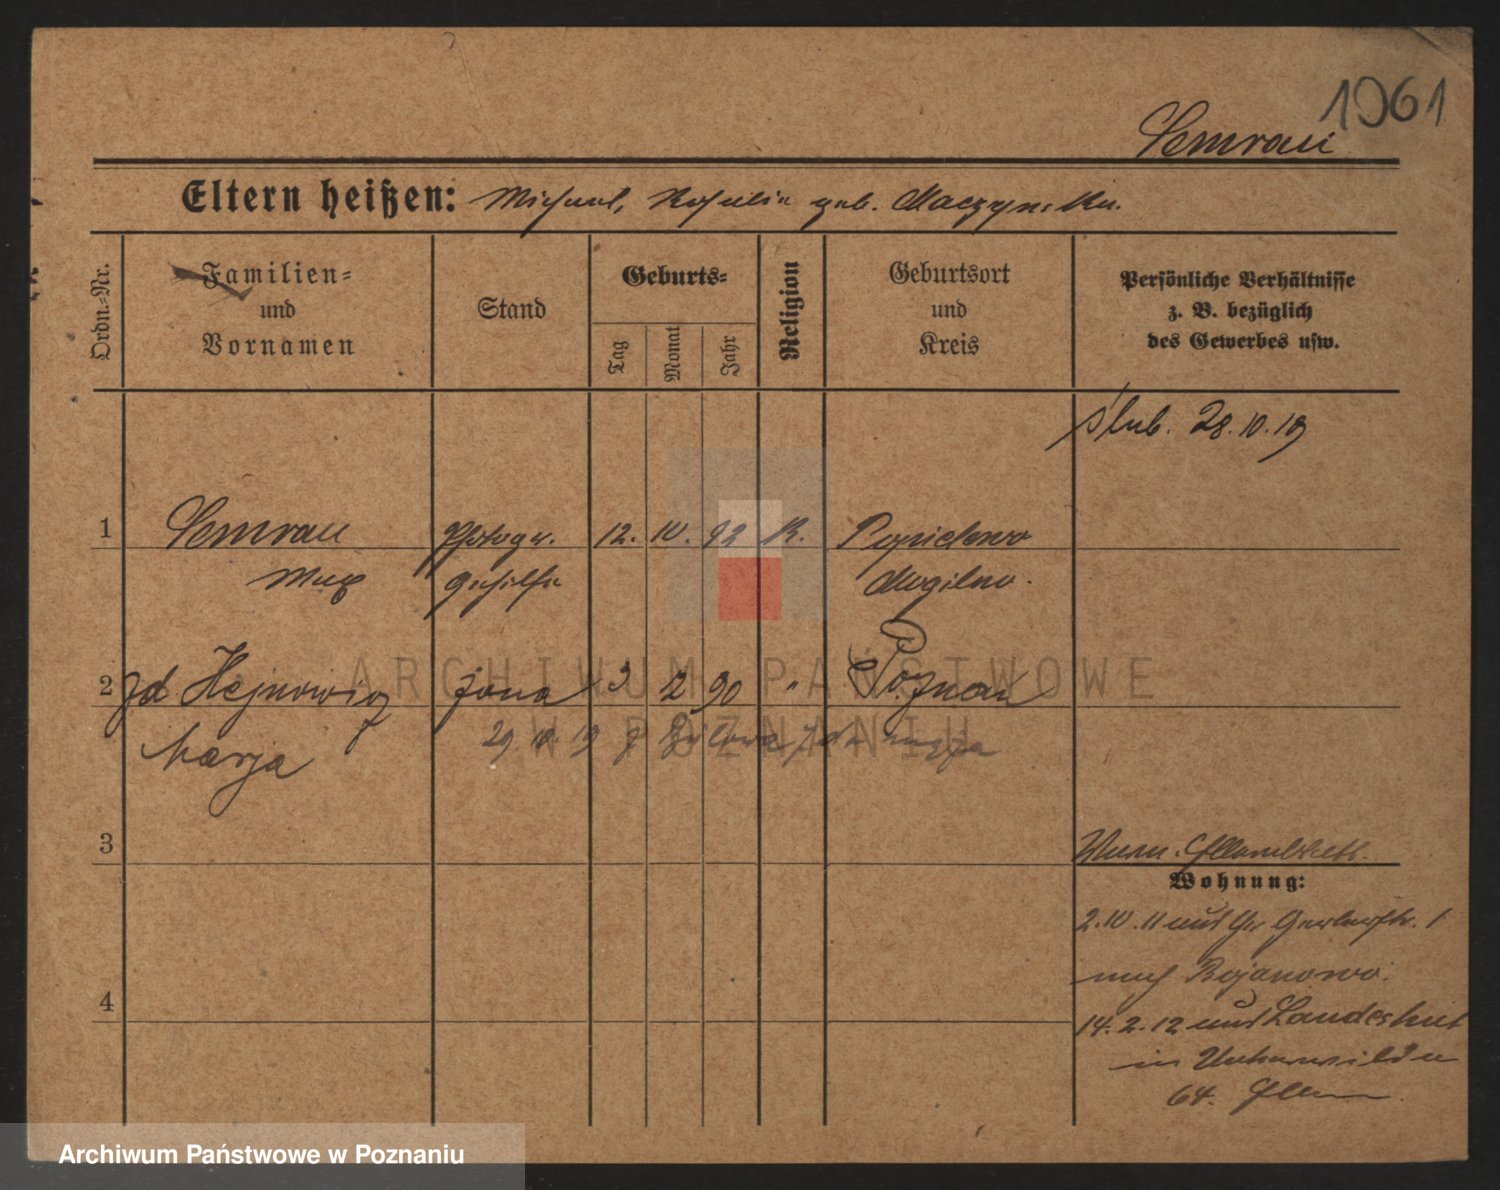 1961
Semrau
Eltern heißen: Michael, Rosalie geb. Maczynska.
Ordn.-Nr.
Familien-
und
Vornamen
Stand
Geburts-
Tag
Monat
Jahr
Religion
Geburtsort
und
Kreis
Persönliche Verhältnisse
z. B. bezüglich
des Gewerbes usw.
ślub. 28.10.19
1 Semrau Photogr. 12. 10. 92 K.
Max Gehilfe Mogilno.
2 zd Hejnowicz żona 3 2 90 " Poznań
Marja
29. 10. 19
3
Wohnung:
2.10.11 Gerberstr. 1
nach Bojanowo.
4
14. 2. 12 Landeshut
in
64.
ARCHIWUM PAŃSTWOWE
W POZNANIU
Archiwum Państwowe w Poznaniu